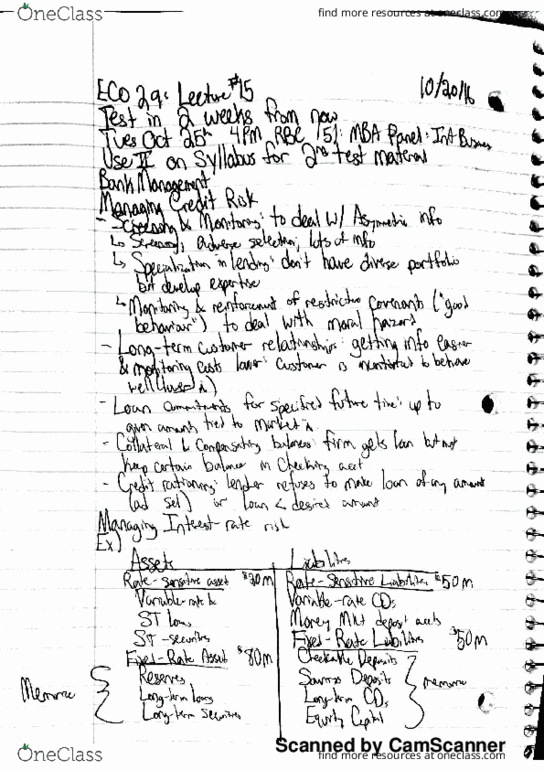 OneClass
find more resources at oneclass.com
ECO 29: Lecture #15
10/20/16
Test in 2 weeks from now
Tues Oct 25th 4PM RBC 151: MBA Panel: Int Business
Use II on Syllabus for 2nd test material
Bank Management
Managing Credit Risk
- Screening & Monitoring: to deal w/ Asymmetric info
↳ Screening, adverse selection, lots of info
↳ Specialization in lending: don't have diverse portfolio
but develop expertise
↳ Monitoring & reinforcement of restrictive covenants ("good
behaviour") to deal with moral hazard
- Long-term customer relationships: getting info easier
& monitoring costs lower: customer is incentivized to behave
well (lower i)
- Loan commitments for specified future time: up to
given amount tied to market i
- Collateral & Compensating balances: firm gets loan but must
keep certain balance in checking acct
- Credit rationing: lender refuses to make loan of any amount
(ad sel) or loan < desired amount
Managing Interest-rate risk
Ex)
Assets Liabilities
Rate-sensitive asset $20m Rate-Sensitive Liabilities $50m
Variable-rate Variable-rate CDs
ST loans Money Mkt deposit accts
ST-securities Fixed-Rate Liabilities $50m
Fixed-Rate Asset $80m Checkable Deposits
Reserves Savings Deposits
Memorize Long-term loans Long-term CDs memorize
Long-term Securities Equity Capital
Scanned by CamScanner
OneClass
find more resources at oneclass.com